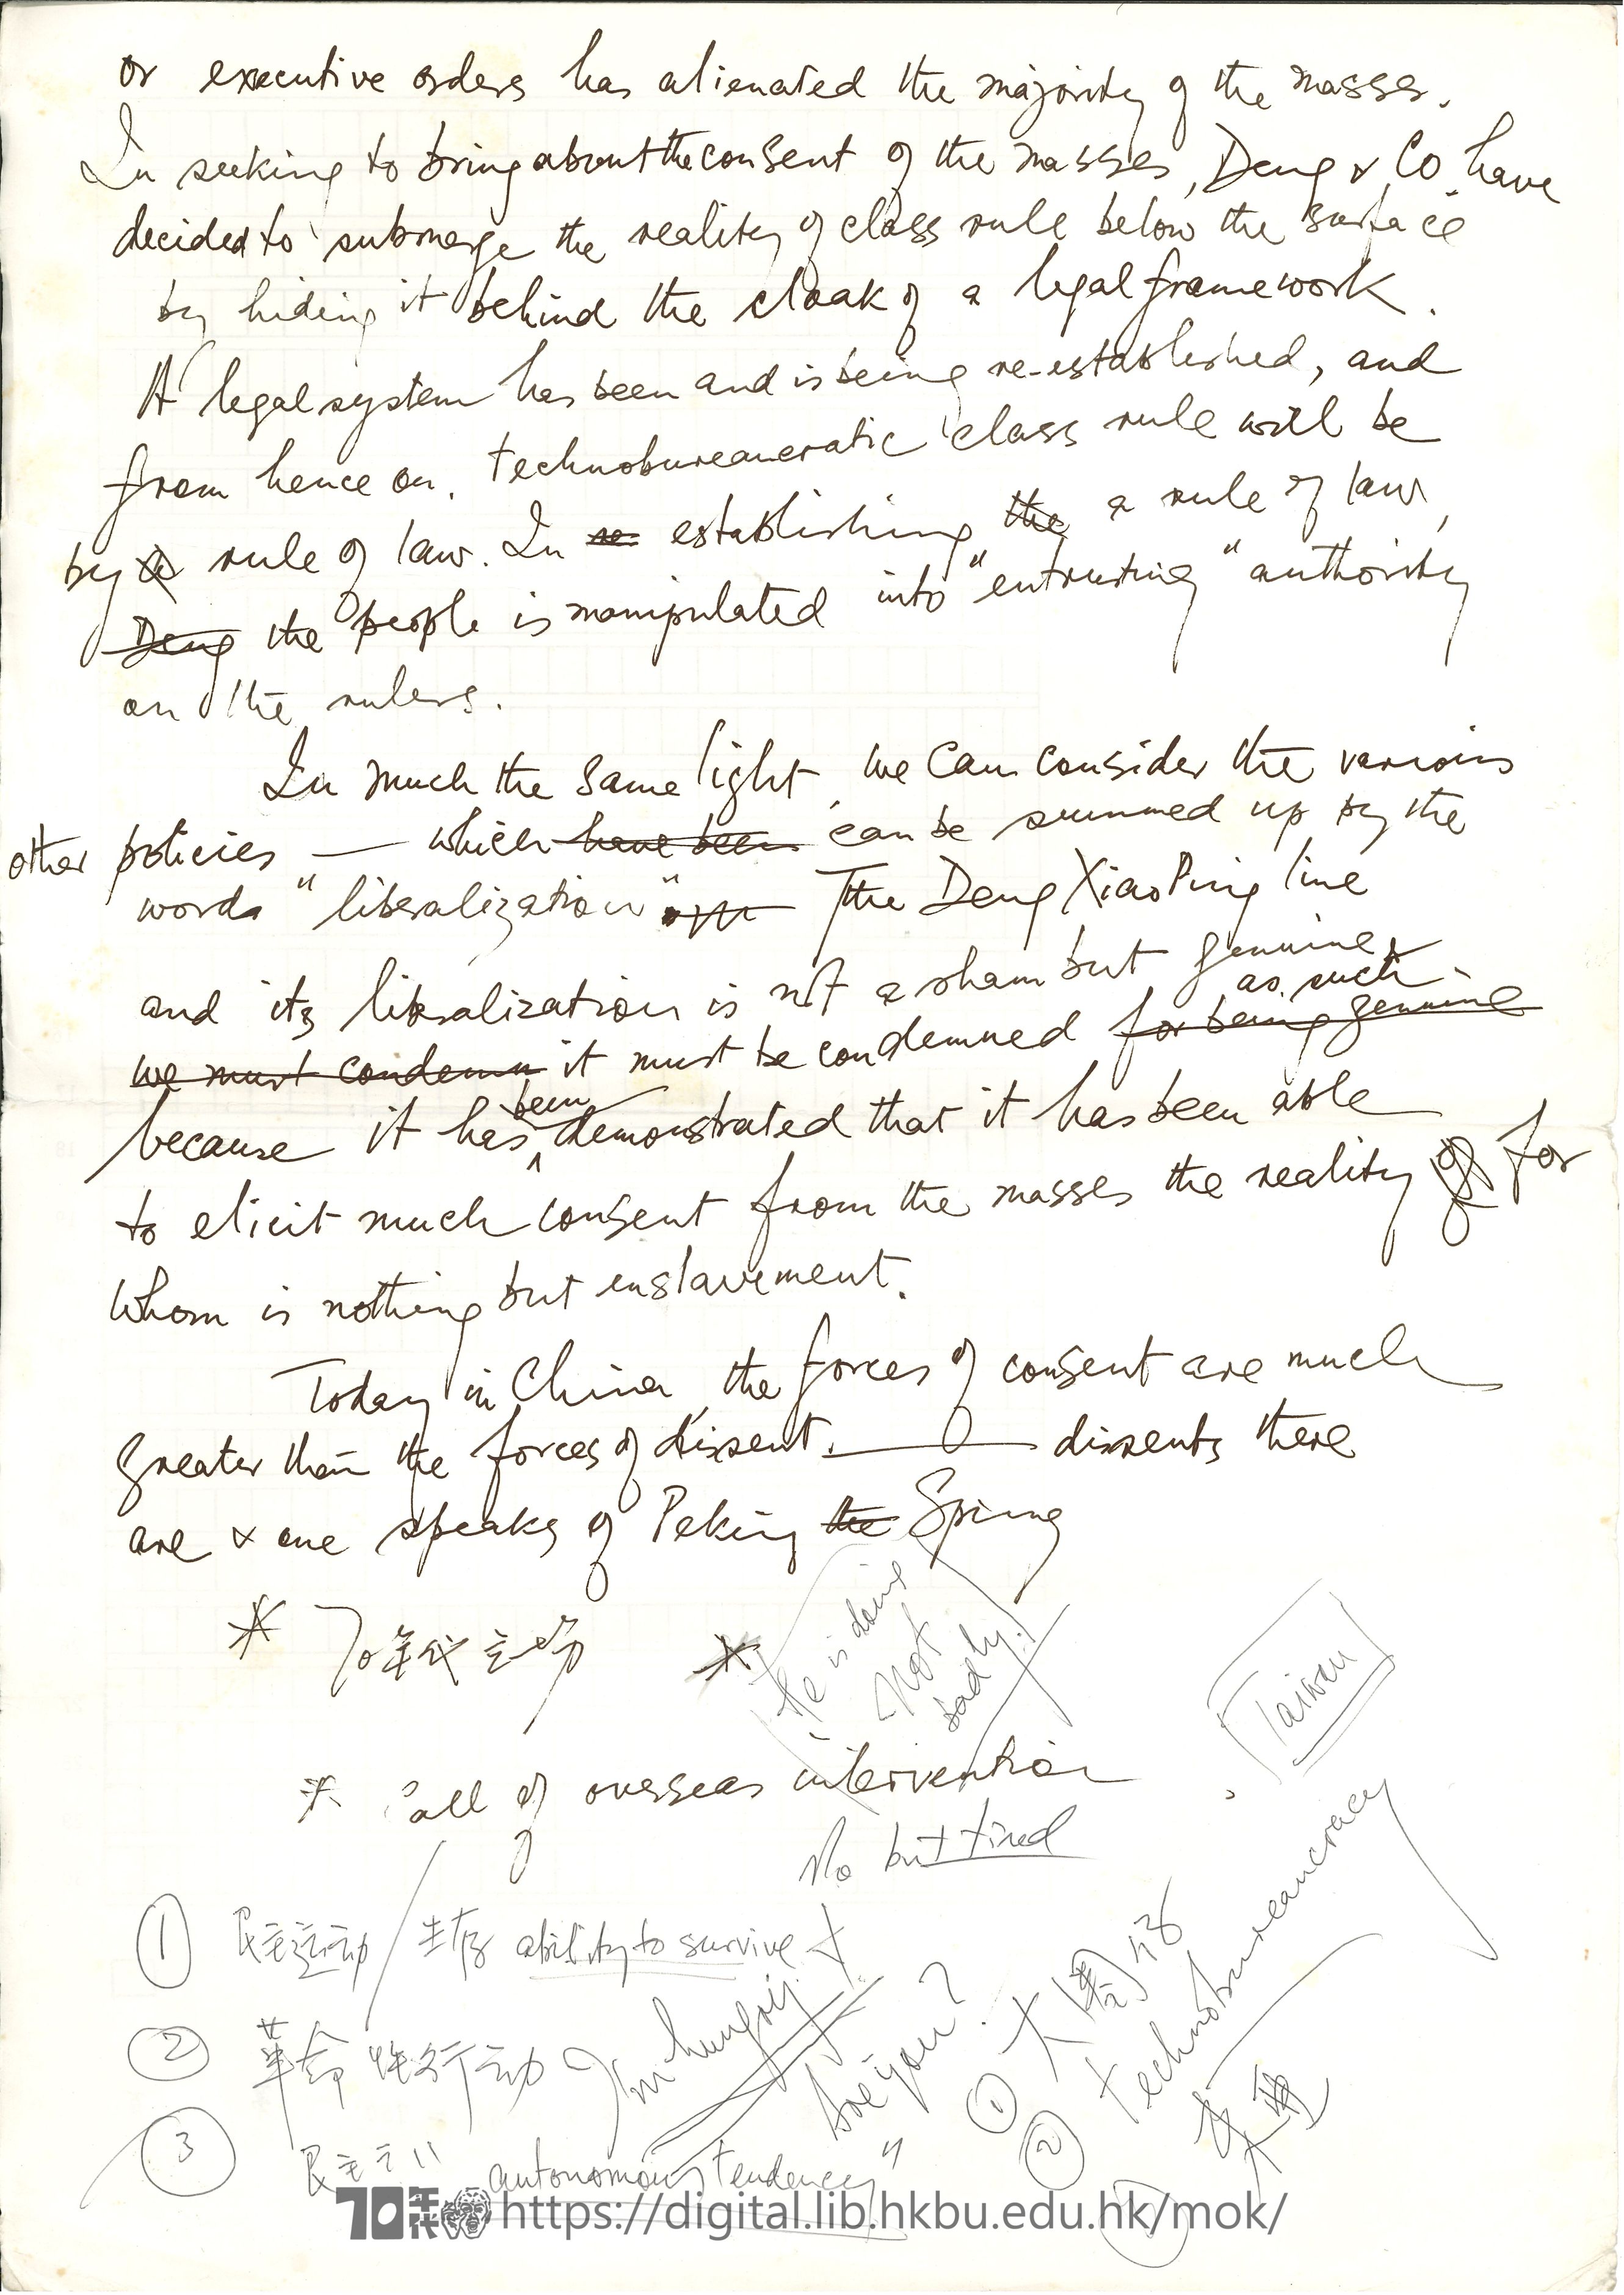 or executive orders has alienated the majority of the masses.
In seeking to bring about the consent of the masses, Deng & Co. have
decided to submerge the reality of class rule below the surface
by hiding it behind the cloak of a legal framework.
A legal system has been and is being re-established, and
from hence on, technobureaucratic class rule will be
by a rule of law. In re establishing the a rule of law,
Deng the people is manipulated into "entrusting" authority
on the rulers.
In much the same light, we can consider the various
other policies — which have been can be summed up by the
words "liberalization" The Deng XiaoPing line
and its liberalization is not a sham but genuine,
as such
we must condemn it must be condemned for being genuine
been
because it has demonstrated that it has been able
to elicit much consent from the masses the reality of for
whom is nothing but enslavement.
Today in China, the forces of consent are much
greater than the forces of dissent. — dissents there
are & one speaks of Peking the Spring
* 70年代
*
He is doing
not
badly!
Taiwan
* Call of overseas intervention
No but tired
① 民主运动 / 生存 ability to survive
② 革命性行动
I'm hungry.
Are you?
③ 民主
autonomous tendency"
① 大
② technobureaucracy
70年代 https://digital.lib.hkbu.edu.hk/mok/